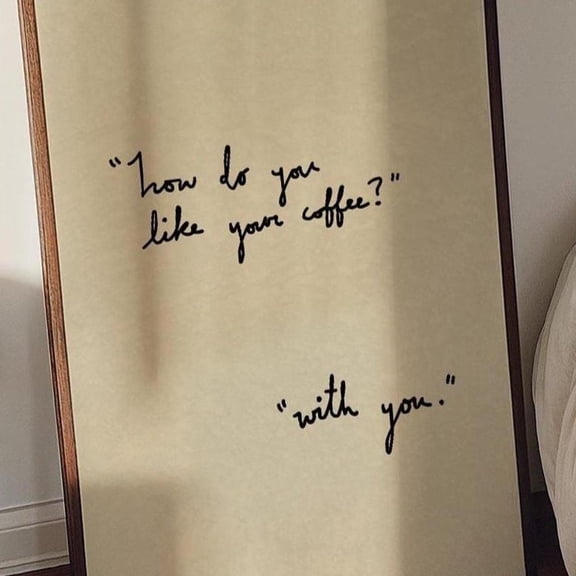 "how do you
like your coffee?"
"with you."